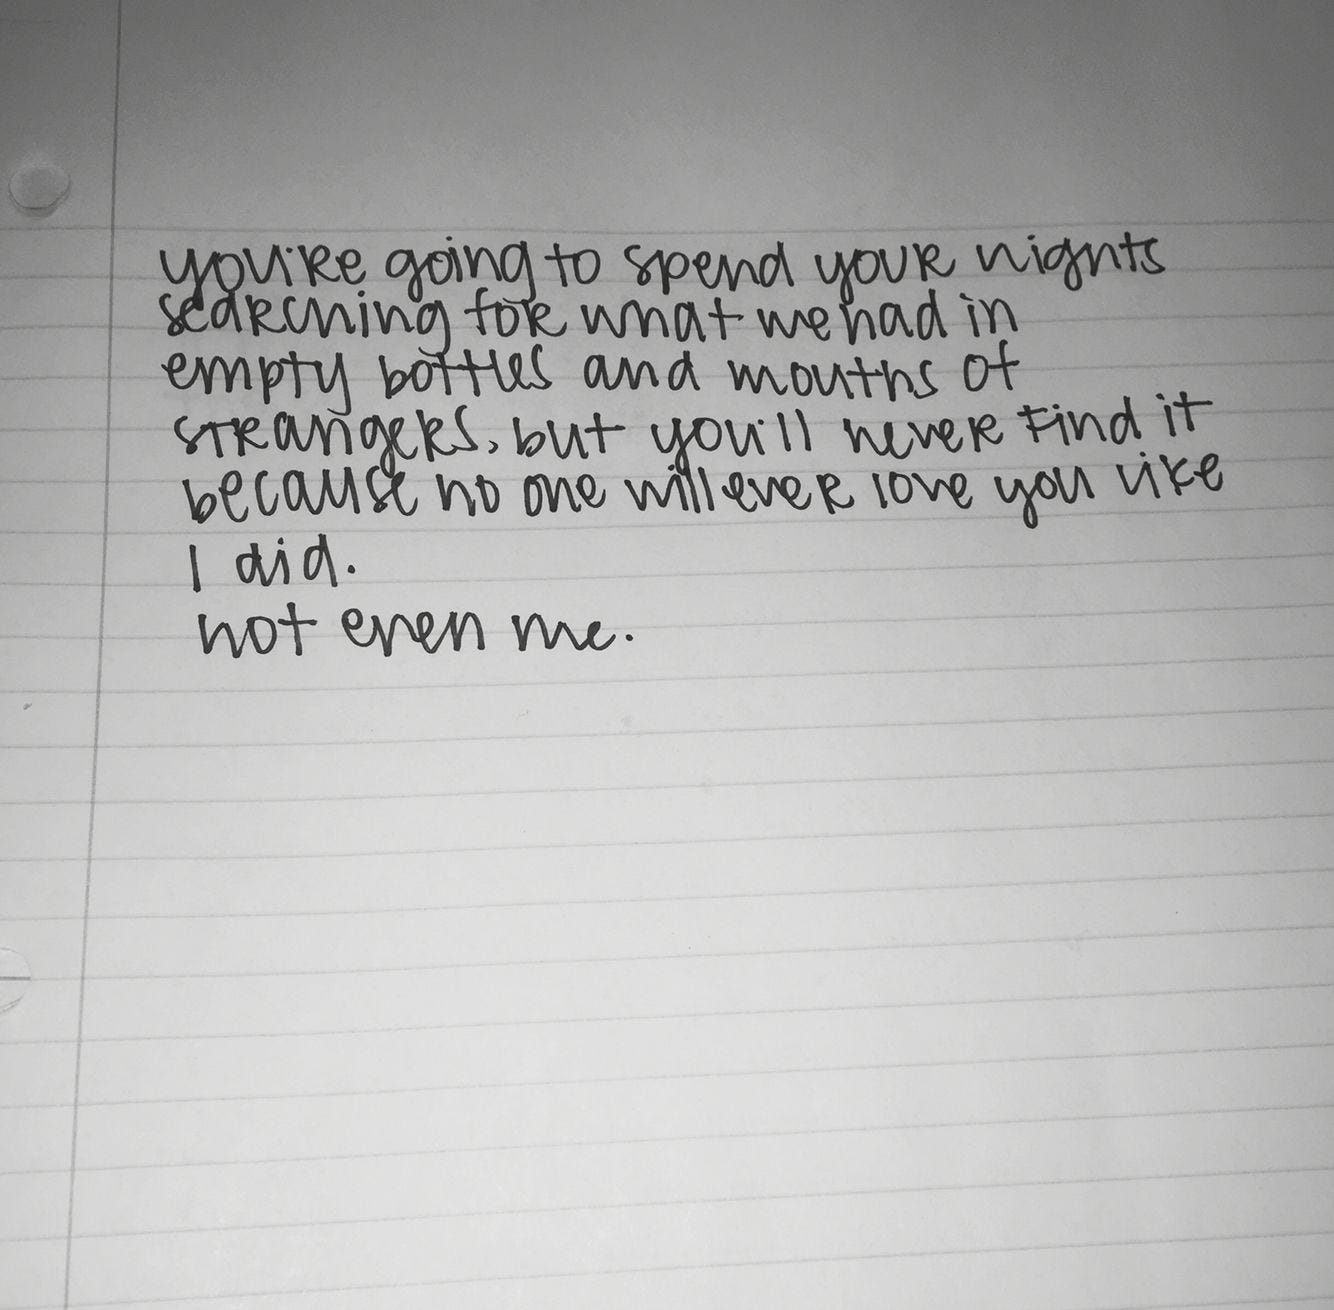 you're going to spend your nights
searching for what we had in
empty bottles and mouths of
strangers, but you'll never find it
because no one will ever love you like
I did.
not even me.